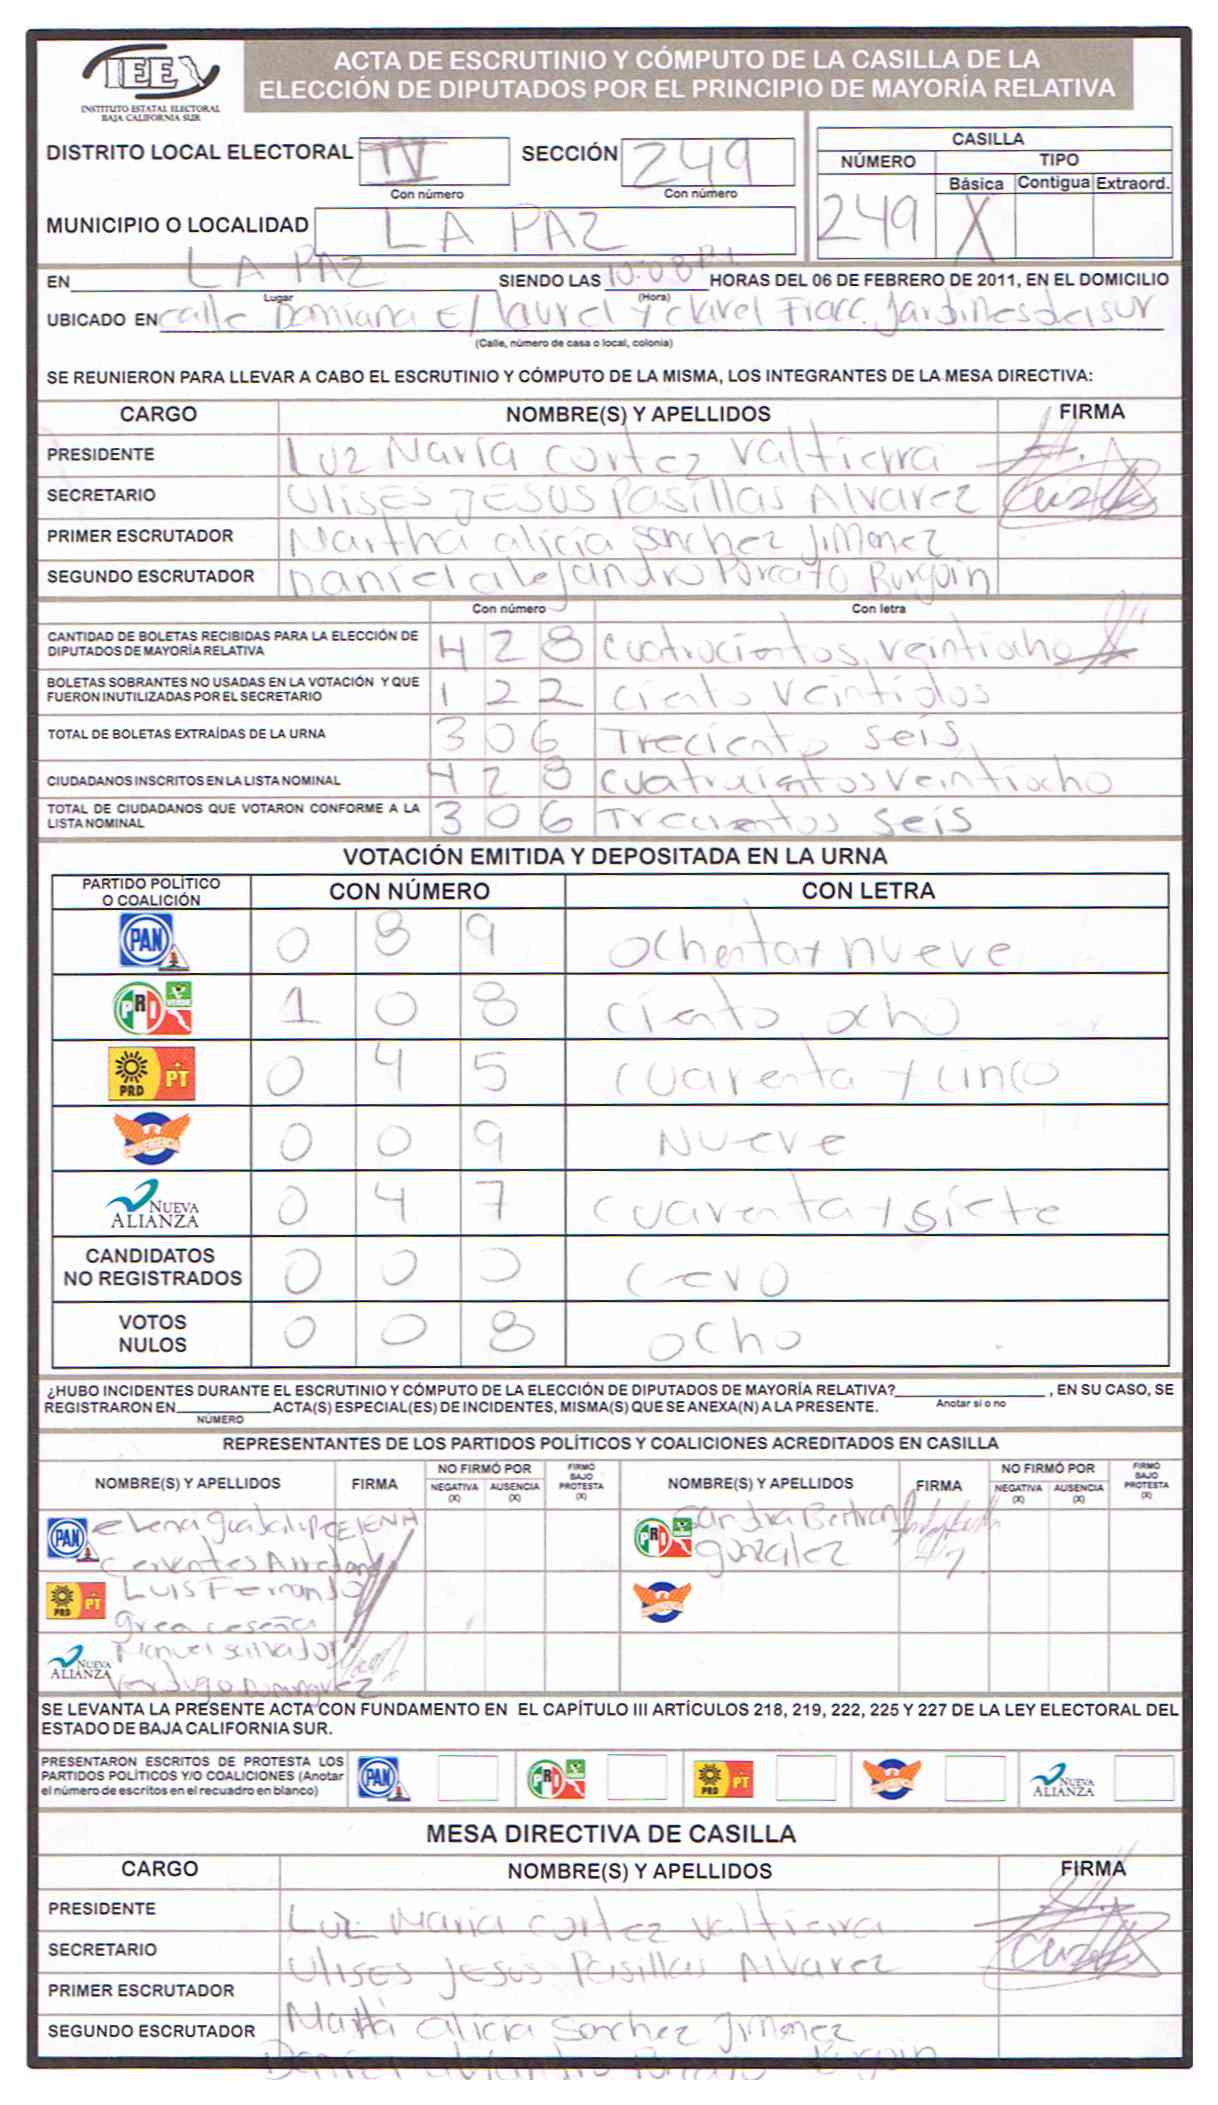 IEEX
INSTITUTO ESTATAL ELECTORAL
BAJA CALIFORNIA SUR
ACTA DE ESCRUTINIO Y CÓMPUTO DE LA CASILLA DE LA
ELECCIÓN DE DIPUTADOS POR EL PRINCIPIO DE MAYORÍA RELATIVA
DISTRITO LOCAL ELECTORAL IV SECCIÓN 249
Con número Con número
MUNICIPIO O LOCALIDAD LA PAZ
CASILLA
NÚMERO TIPO
Básica Contigua Extraord.
249 X
EN LA PAZ SIENDO LAS 10:08 PM HORAS DEL 06 DE FEBRERO DE 2011, EN EL DOMICILIO
Lugar (Hora)
UBICADO EN calle Damiana E/ laurel y clavel Fracc. Jardines del sur
(Calle, número de casa o local, colonia)
SE REUNIERON PARA LLEVAR A CABO EL ESCRUTINIO Y CÓMPUTO DE LA MISMA, LOS INTEGRANTES DE LA MESA DIRECTIVA:
CARGO NOMBRE(S) Y APELLIDOS FIRMA
PRESIDENTE Luz María Cortez Valtierra
SECRETARIO Ulises Jesus Pasillas Alvarez
PRIMER ESCRUTADOR Martha alicia Sanchez Jimenez
SEGUNDO ESCRUTADOR Daniel alejandro Burgoin
Con número Con letra
CANTIDAD DE BOLETAS RECIBIDAS PARA LA ELECCIÓN DE
DIPUTADOS DE MAYORÍA RELATIVA 428 cuatrocientos veintiocho
BOLETAS SOBRANTES NO USADAS EN LA VOTACIÓN Y QUE
FUERON INUTILIZADAS POR EL SECRETARIO 122 ciento veintidos
TOTAL DE BOLETAS EXTRAÍDAS DE LA URNA 306 Treciento seis
CIUDADANOS INSCRITOS EN LA LISTA NOMINAL 428 cuatrocientos veintiocho
TOTAL DE CIUDADANOS QUE VOTARON CONFORME A LA
LISTA NOMINAL 306 Trecientos seis
VOTACIÓN EMITIDA Y DEPOSITADA EN LA URNA
PARTIDO POLÍTICO
O COALICIÓN CON NÚMERO CON LETRA
PAN 0 8 9 ochenta y nueve
PRI VERDE 1 0 8 ciento ocho
PRD PT 0 4 5 cuarenta y cinco
CONVERGENCIA 0 0 9 Nueve
NUEVA ALIANZA 0 4 7 cuarenta y siete
CANDIDATOS
NO REGISTRADOS 0 0 0 cero
VOTOS
NULOS 0 0 8 ocho
¿HUBO INCIDENTES DURANTE EL ESCRUTINIO Y CÓMPUTO DE LA ELECCIÓN DE DIPUTADOS DE MAYORÍA RELATIVA? , EN SU CASO, SE
Anotar si o no
REGISTRARON EN ACTA(S) ESPECIAL(ES) DE INCIDENTES, MISMA(S) QUE SE ANEXA(N) A LA PRESENTE.
NÚMERO
REPRESENTANTES DE LOS PARTIDOS POLÍTICOS Y COALICIONES ACREDITADOS EN CASILLA
NOMBRE(S) Y APELLIDOS FIRMA NO FIRMÓ POR NEGATIVA (X) AUSENCIA (X) FIRMÓ BAJO PROTESTA (X) NOMBRE(S) Y APELLIDOS FIRMA NO FIRMÓ POR NEGATIVA (X) AUSENCIA (X) FIRMÓ BAJO PROTESTA (X)
PAN Elena Guadalupe ELENA PRI VERDE Sandra Bertran
Cervantes gonzalez
PRD PT Luis Fernando CONVERGENCIA
ceseña
NUEVA ALIANZA Manuel salvador
Verdugo Dominguez
SE LEVANTA LA PRESENTE ACTA CON FUNDAMENTO EN EL CAPÍTULO III ARTÍCULOS 218, 219, 222, 225 Y 227 DE LA LEY ELECTORAL DEL
ESTADO DE BAJA CALIFORNIA SUR.
PRESENTARON ESCRITOS DE PROTESTA LOS
PARTIDOS POLÍTICOS Y/O COALICIONES (Anotar
el número de escritos en el recuadro en blanco)
PAN PRI VERDE PRD PT CONVERGENCIA NUEVA ALIANZA
MESA DIRECTIVA DE CASILLA
CARGO NOMBRE(S) Y APELLIDOS FIRMA
PRESIDENTE Luz Maria Cortez Valtierra
SECRETARIO Ulises Jesus Pasillas Alvarez
PRIMER ESCRUTADOR Martha alicia Sanchez Jimenez
SEGUNDO ESCRUTADOR Daniel alejandro Burgoin